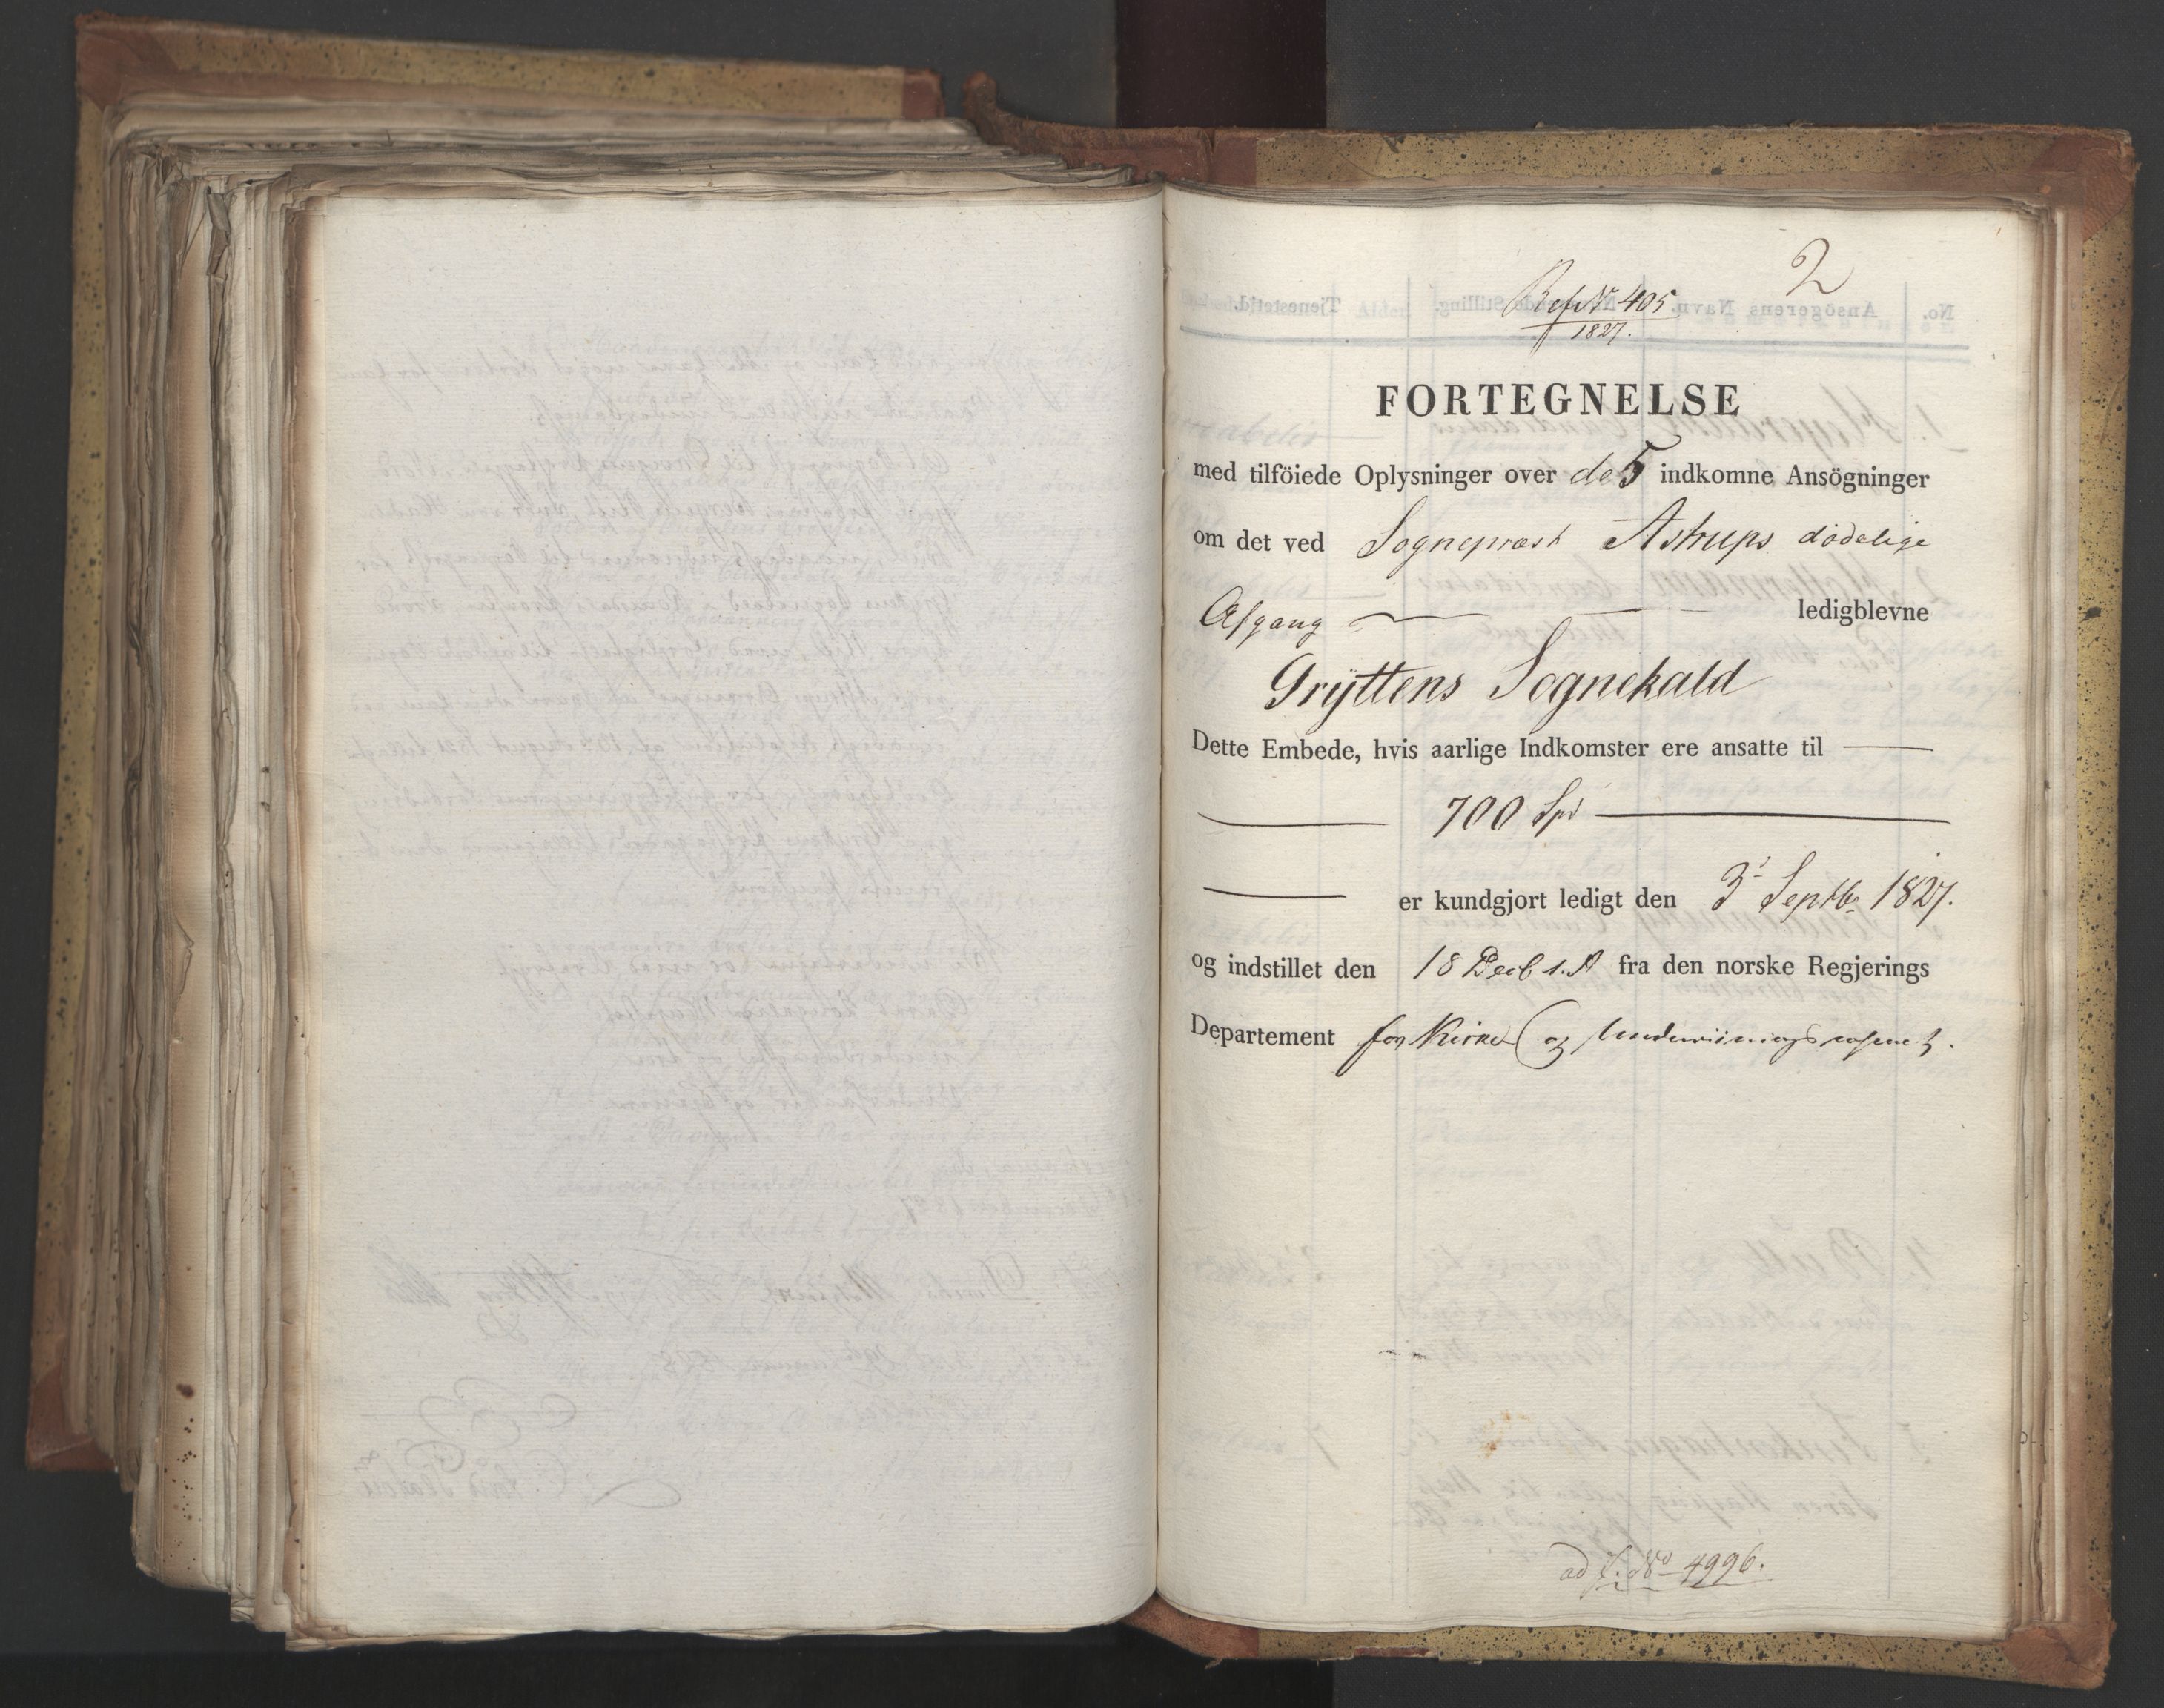 2
Ref No 405
1827.
FORTEGNELSE
med tilföiede Oplysninger over de 5 indkomne Ansögninger
om det ved Sogneprest Astrups dödelige
Afgang — — ledigblevne
Gryttens Sognekald
Dette Embede, hvis aarlige Indkomster ere ansatte til —
— 700 Spd —
— er kundgjort ledigt den 3d Septbr 1827.
og indstillet den 18 Decb s. A fra den norske Regjerings
Departement for Kirke og Underviisningsvæsenet.
ad No 4996.